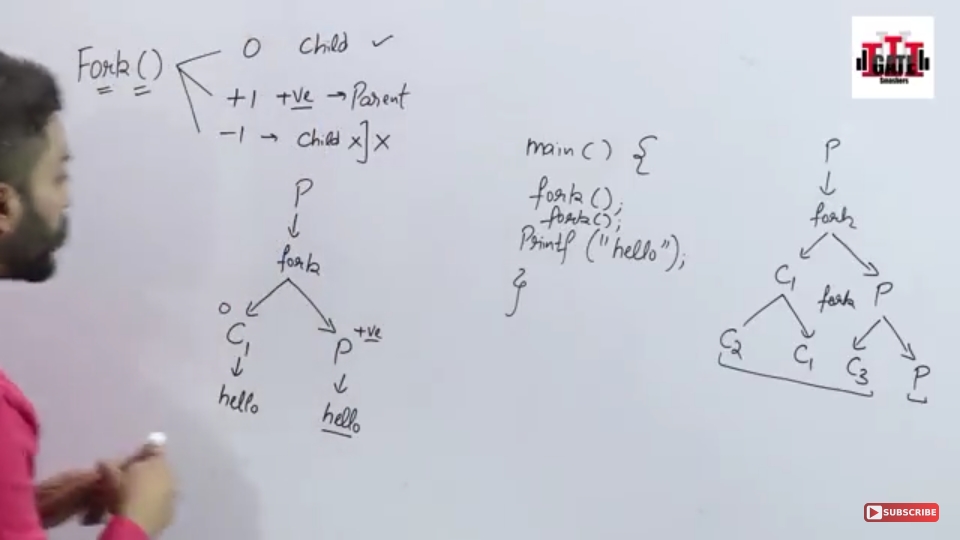 Fork()
0 child ✓
+1 +ve → Parent
-1 → child ×] ×
P
fork
0
C1
P +ve
hello
hello
main() {
fork();
fork();
Printf ("hello");
}
P
fork
C1
fork
P
C2
C1
C3
P
GATE
Smashers
SUBSCRIBE